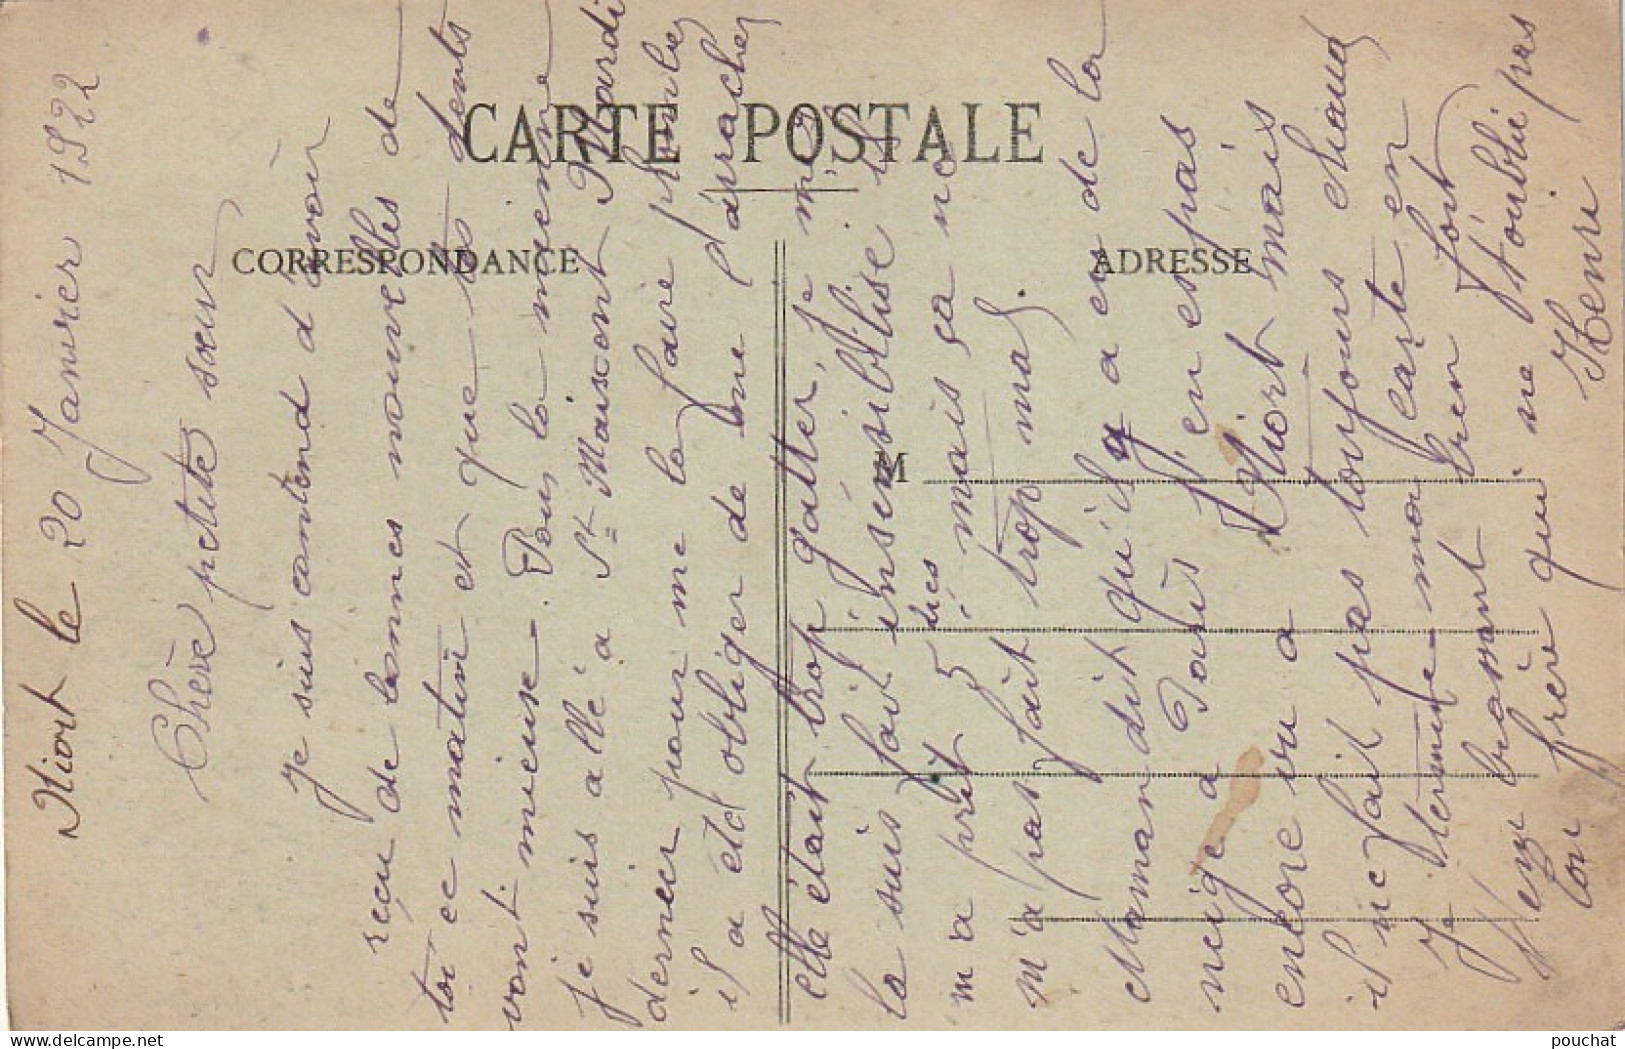 CARTE POSTALE
CORRESPONDANCE
ADRESSE
M
Niort le 20 Janvier 1922
Chère petite sœur
Je suis contend d'avoir
reçu de bonnes nouvelles de
toi ce matin et que tes dents
vont mieuse. Pour la mienne
je suis allé a St Maixent Mardi
dernier pour me la faire plombée
il a etet obliger de me l'aracher
elle était trop gatter, je me
la suis fait insensibilise il
m'a prit 5 mais ça ne
m'a pas fait trop mal.
Maman dit qu'il y a eu de la
neige a Paris j'en est pas
encore vu a Niort mais
il ne fait pas toujours chaud
Je termine ma carte en
bien fort
ton frère qui ne t'oublie pas
Henri
pouchat